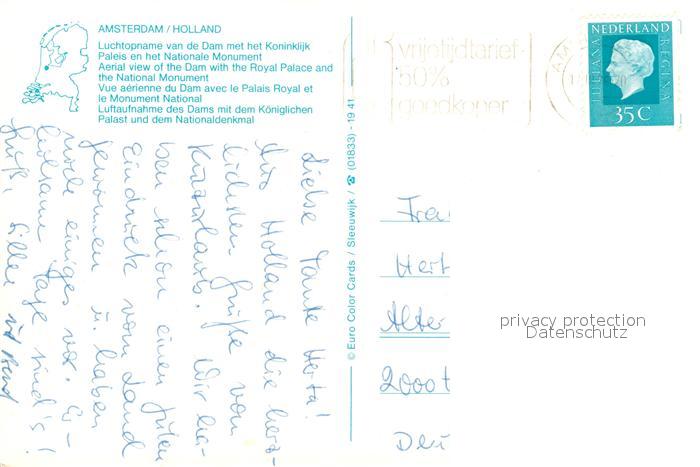 AMSTERDAM / HOLLAND
Luchtopname van de Dam met het Koninklijk
Paleis en het Nationale Monument
Aerial view of the Dam with the Royal Palace and
the National Monument
Vue aérienne du Dam avec le Palais Royal et
le Monument National
Luftaufnahme des Dams mit dem Königlichen
Palast und dem Nationaldenkmal
vrijetijdtarief
50%
goedkoper
NEDERLAND
JULIANA
REGINA
35 C
© Euro Color Cards / Sleeuwijk / ☎ (01833) - 19 41
Liebe Tante Herta!
Aus Holland die herz-
lichsten Grüße vom
Kurzurlaub. Wir ha-
ben schon einen guten
Eindruck vom Land
gewonnen u. haben
noch einiges vor. Er-
holsame Tage sind's!
Grüße,
und
Frau
Hert
Alter
2000
Deu
privacy protection
Datenschutz